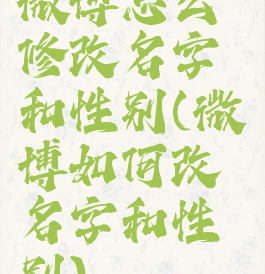 微博怎么
修改名字
和性别(微
博如何改
名字和性
别)